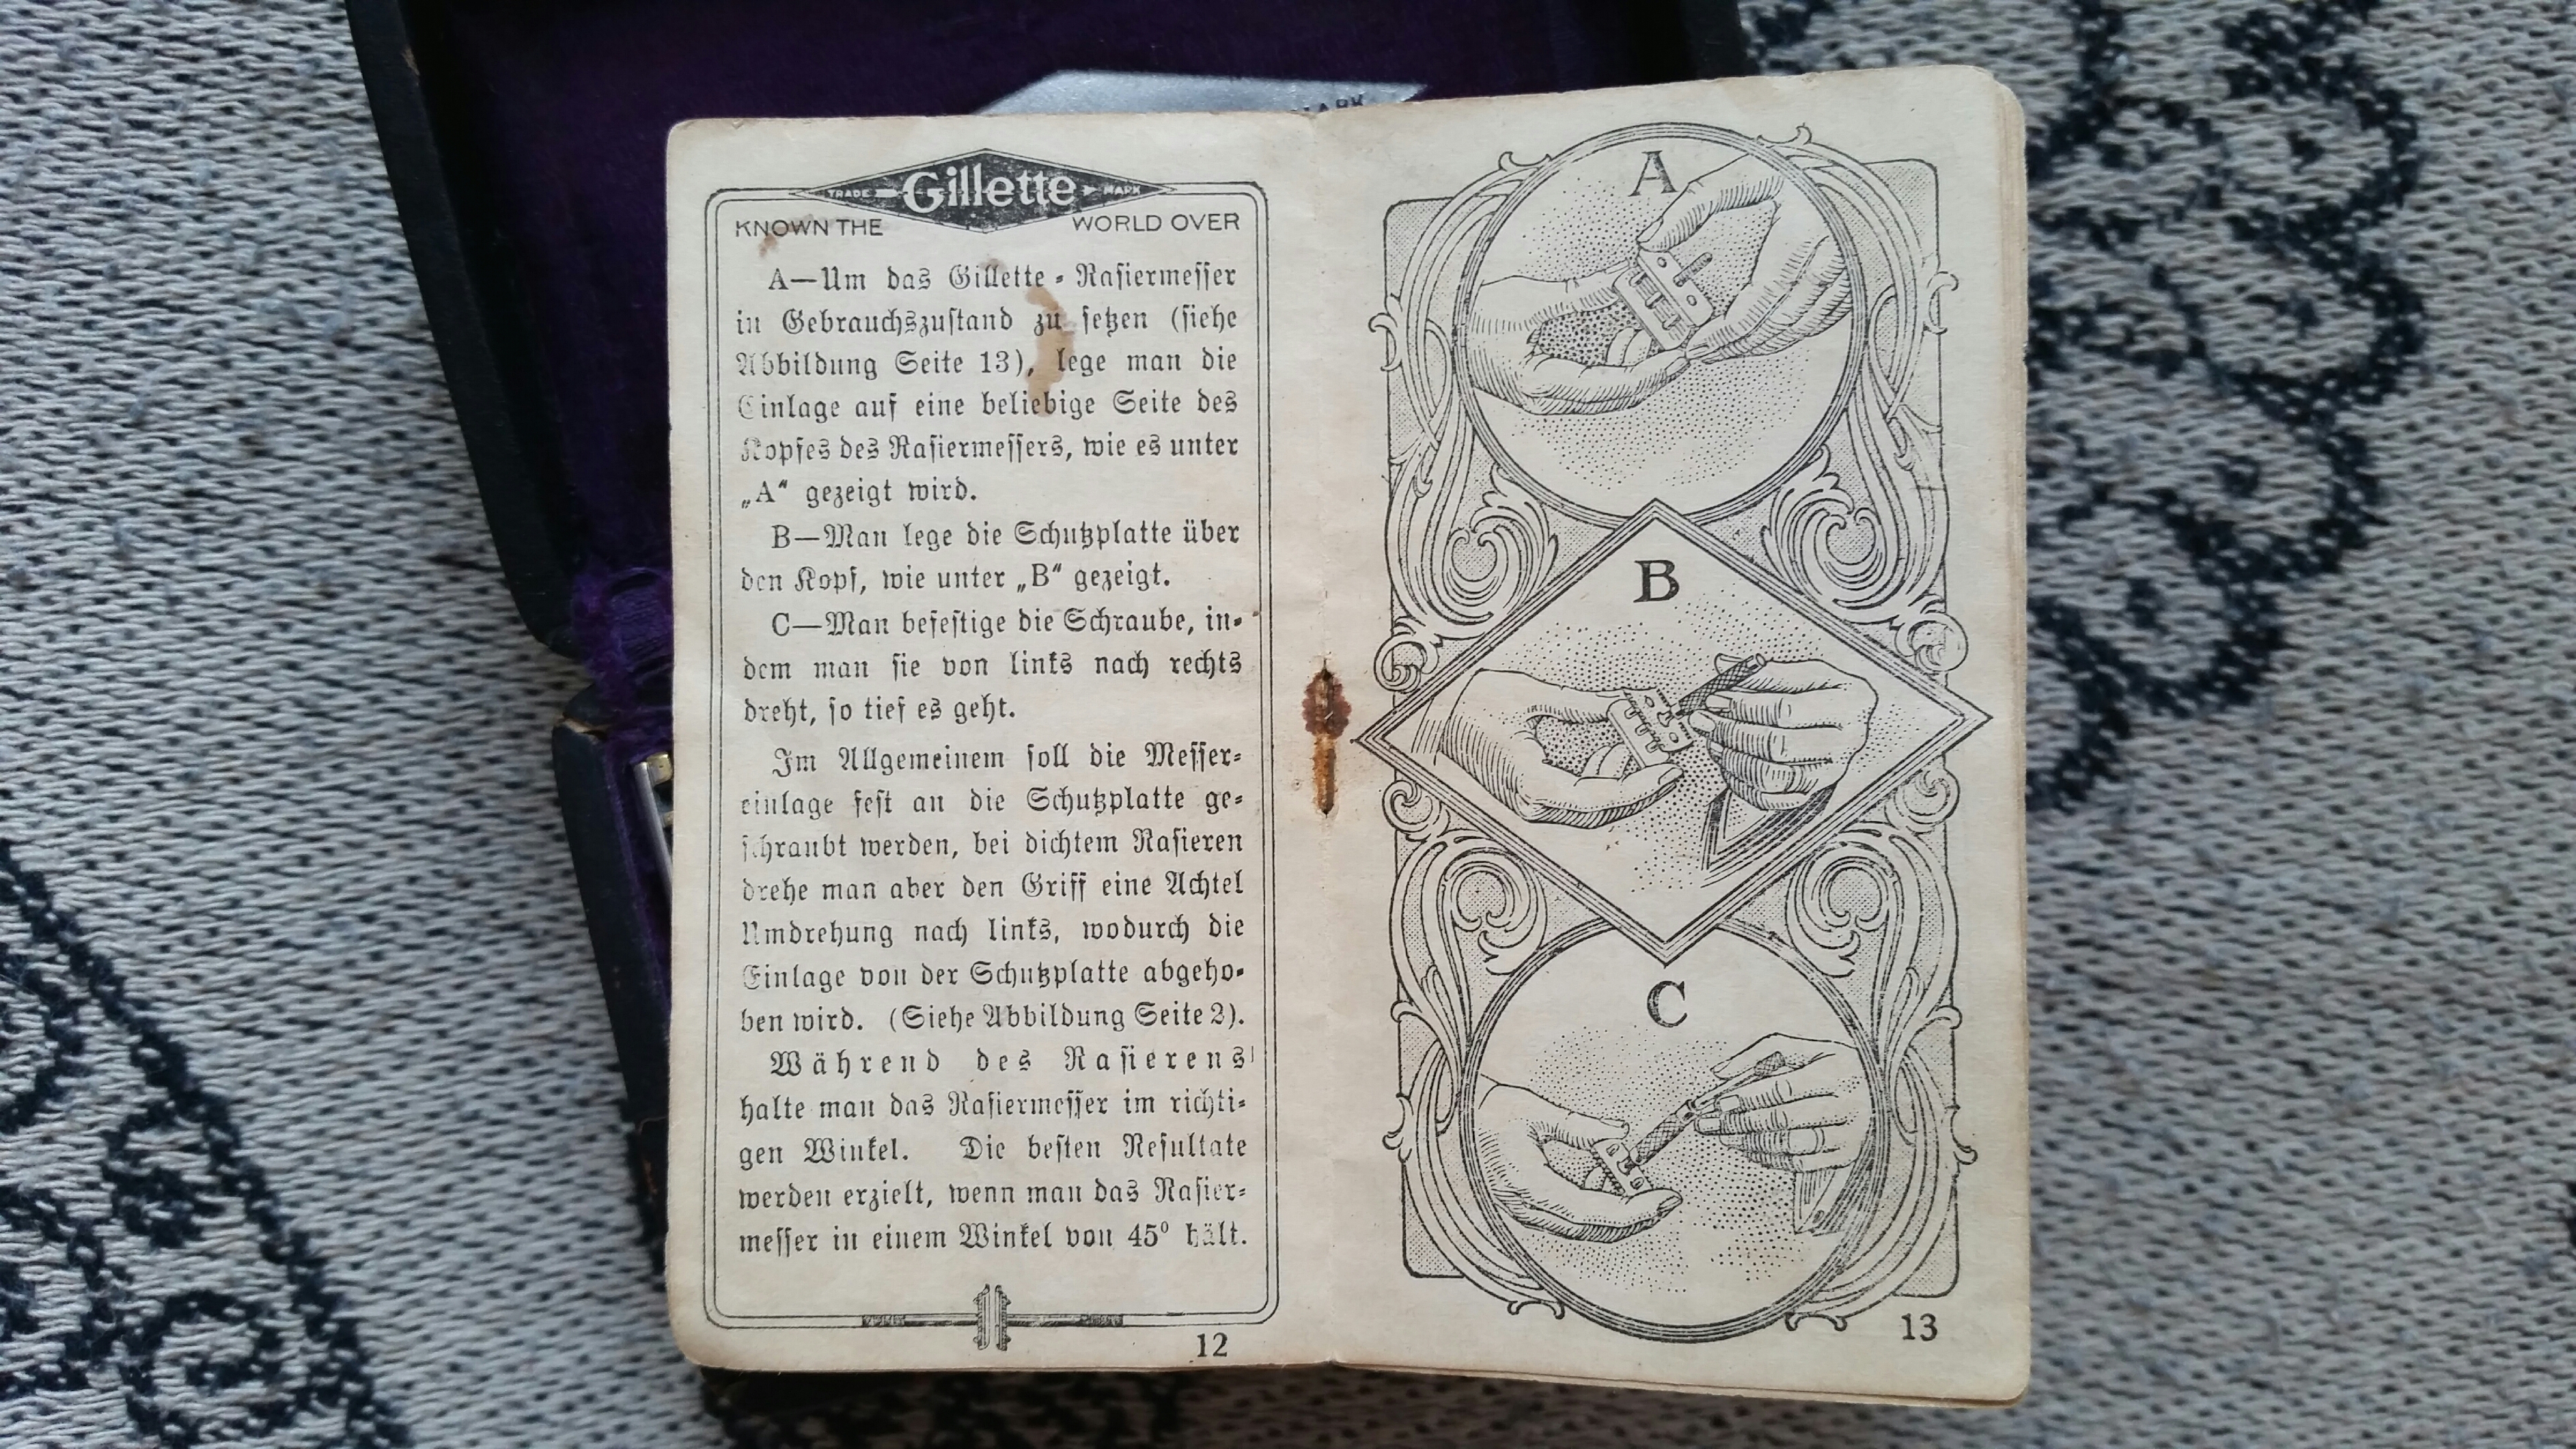 MARK
TRADE Gillette MARK
KNOWN THE WORLD OVER
A—Um das Gillette-Rasiermesser
in Gebrauchszustand zu setzen (siehe
Abbildung Seite 13), lege man die
Einlage auf eine beliebige Seite des
Kopfes des Rasiermessers, wie es unter
„A“ gezeigt wird.
B—Man lege die Schutzplatte über
den Kopf, wie unter „B“ gezeigt.
C—Man befestige die Schraube, in-
dem man sie von links nach rechts
dreht, so tief es geht.
Im Allgemeinem soll die Messer-
einlage fest an die Schutzplatte ge-
schraubt werden, bei dichtem Rasieren
drehe man aber den Griff eine Achtel
Umdrehung nach links, wodurch die
Einlage von der Schutzplatte abgeho-
ben wird. (Siehe Abbildung Seite 2).
Während des Rasierens
halte man das Rasiermesser im richti-
gen Winkel. Die besten Resultate
werden erzielt, wenn man das Rasier-
messer in einem Winkel von 45° hält.
12
A
B
C
13